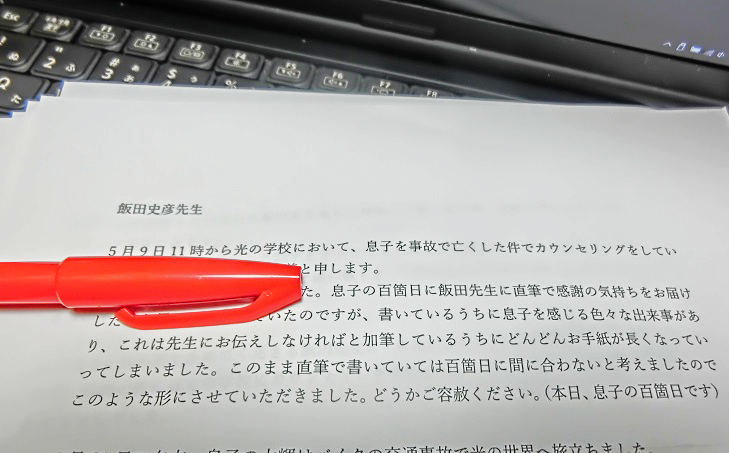 Esc
F1
F2
F3
F4
F5
F6
F7
F8
2 ふ
3
Q
飯田史彦先生
5月9日11時から光の学校において、息子を事故で亡くした件でカウンセリングをしてい
と申します。
た。息子の百箇日に飯田先生に直筆で感謝の気持ちをお届け
した
いたのですが、書いているうちに息子を感じる色々な出来事があ
り、これは先生にお伝えしなければと加筆しているうちにどんどんお手紙が長くなってい
ってしまいました。このまま直筆で書いていては百箇日に間に合わないと考えましたので
このような形にさせていただきました。どうかご容赦ください。(本日、息子の百箇日です)
息子の
バイクの交通事故で光の世界へ旅立ちました。